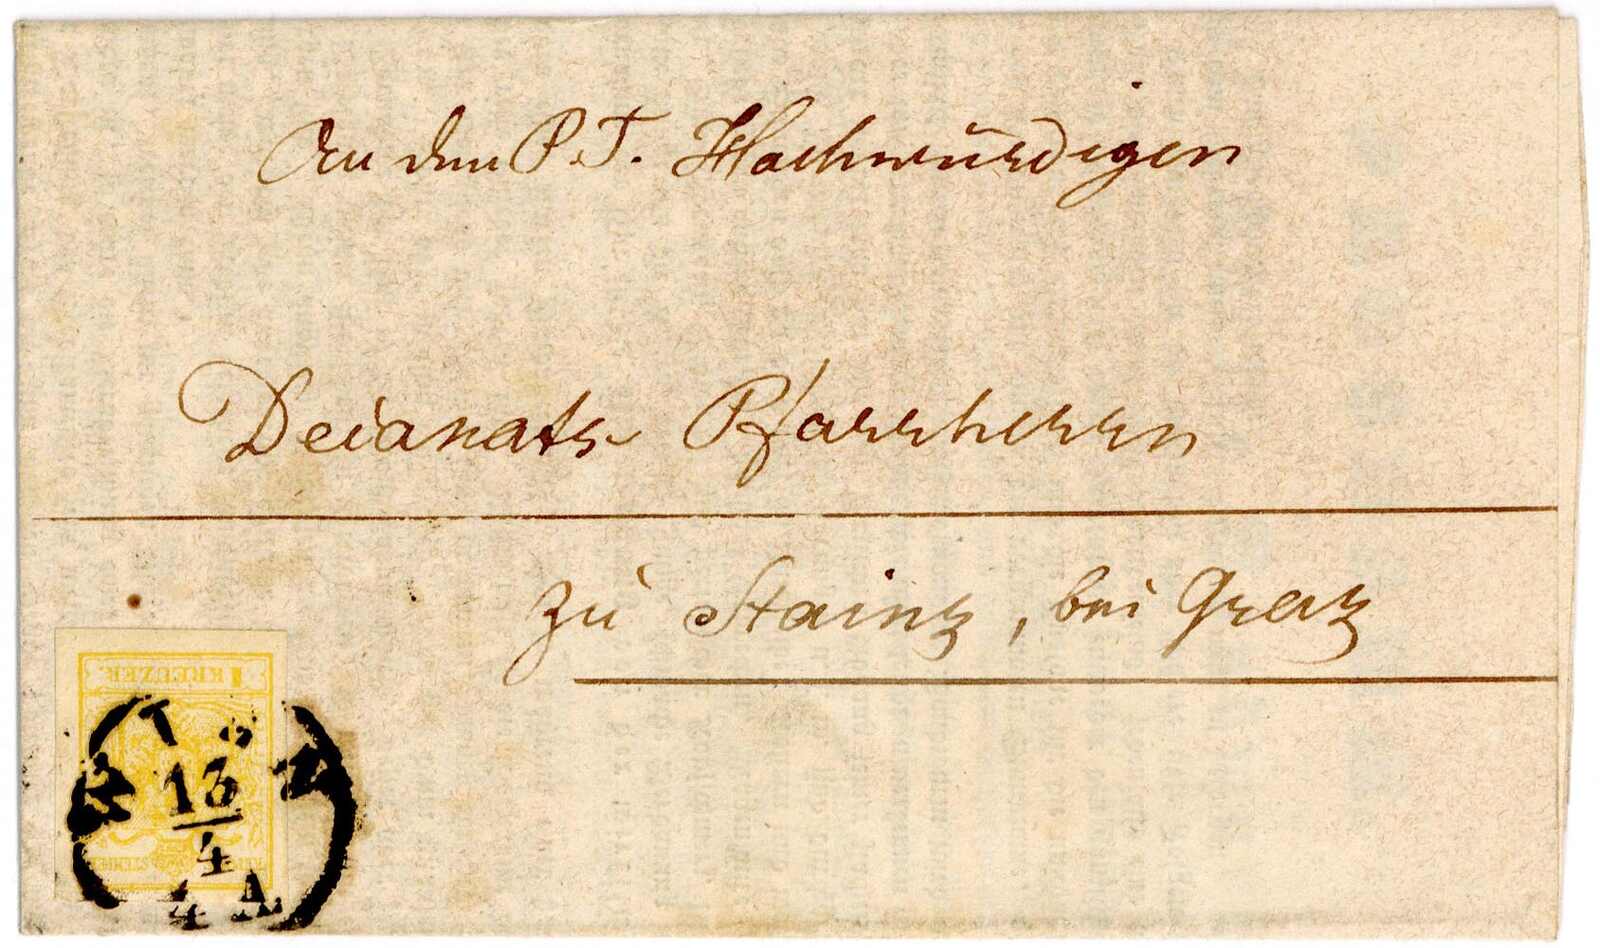 An den P. T. Hochwürdigen
Decanats Pfarrherrn
zu Stainz, bei Graz
1 KREUZER
13
4
4 A